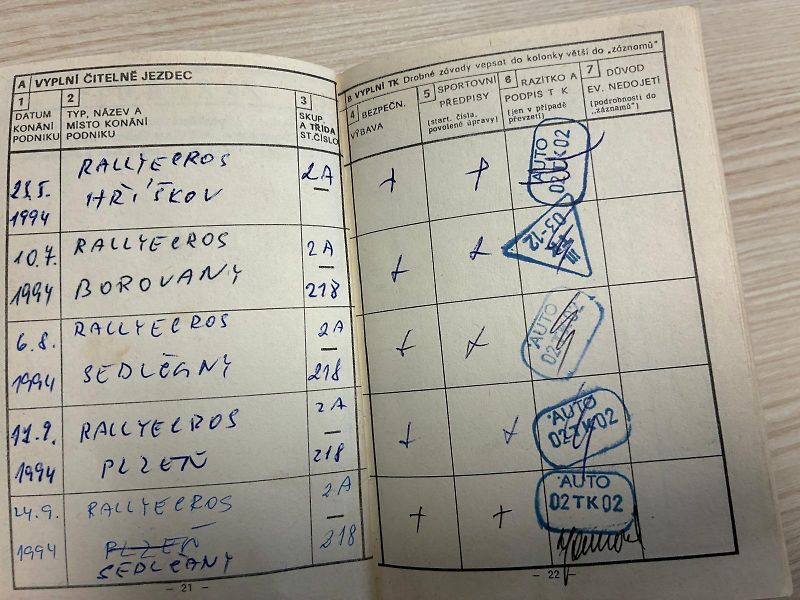 A VYPLNÍ ČITELNĚ JEZDEC
1
DATUM
KONÁNÍ
PODNIKU
2
TYP, NÁZEV A
MÍSTO KONÁNÍ
PODNIKU
3
SKUP.
A TŘÍDA
ST.ČÍSLO
1994
RALLYECROS
HŘÍŠKOV
2A
—
10.7.
1994
RALLYECROS
BOROVANY
2A
—
218
6.8.
1994
RALLYECROS
SEDLČANY
2A
—
218
1994
RALLYECROS
PLZEŇ
2A
—
218
24.9.
1994
RALLYECROS
PLZEŇ
SEDLČANY
2A
—
218
— 21 —
B VYPLNÍ TK Drobné závady vepsat do kolonky větší do „záznamů"
4
BEZPEČN.
VÝBAVA
5
SPORTOVNÍ
PŘEDPISY
(start. čísla,
povolené úpravy)
6
RAZÍTKO A
PODPIS T K
(jen v případě
převzetí)
7
DŮVOD
EV. NEDOJETÍ
(podrobnosti do
„záznamů")
+ +
AUTO
02TK02
+ +
03-12
+ +
AUTO
02TK02
+ +
AUTO
02TK02
+ +
AUTO
02TK02
— 22 —